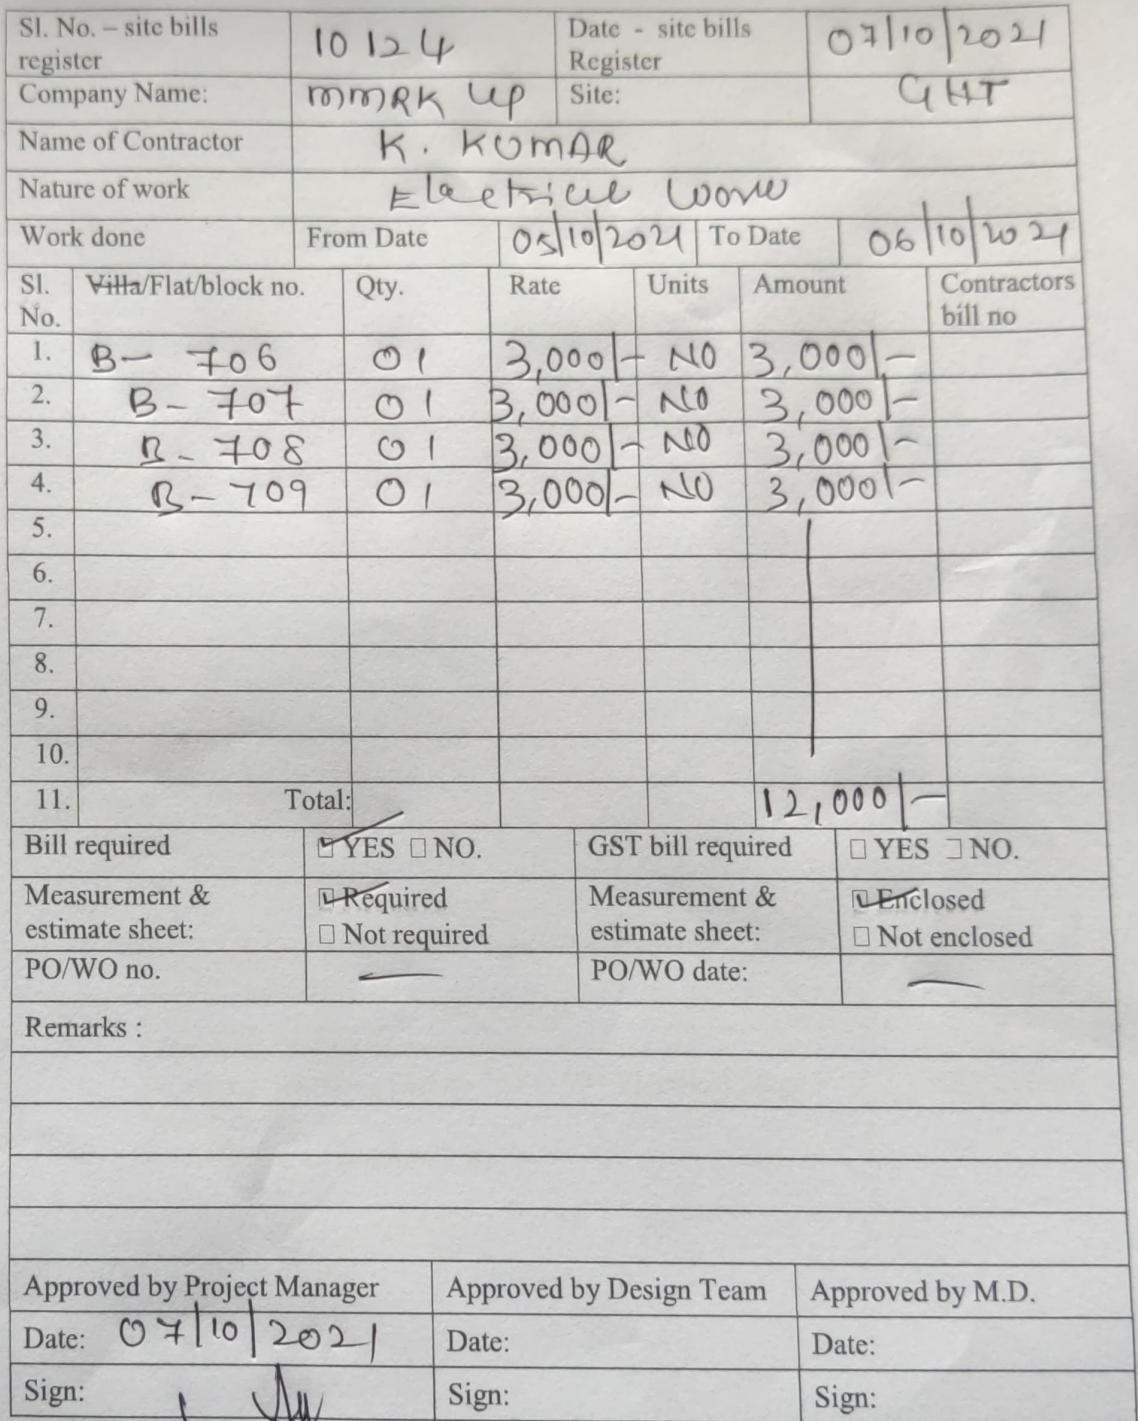 Sl. No. – site bills register 10124 Date - site bills Register 07/10/2021
Company Name: MMRK LLP Site: GHT
Name of Contractor K. KUMAR
Nature of work Electrical work
Work done From Date 05/10/2021 To Date 06/10/2021
Sl. No. Villa/Flat/block no. Qty. Rate Units Amount Contractors bill no
1. B- 706 01 3,000/- NO 3,000/-
2. B- 707 01 3,000/- NO 3,000/-
3. B- 708 01 3,000/- NO 3,000/-
4. B- 709 01 3,000/- NO 3,000/-
5.
6.
7.
8.
9.
10.
11. Total: 12,000/-
Bill required ☑ YES ☐ NO. GST bill required ☐ YES ☐ NO.
Measurement & estimate sheet: ☑ Required ☐ Not required Measurement & estimate sheet: ☑ Enclosed ☐ Not enclosed
PO/WO no. — PO/WO date: —
Remarks :
Approved by Project Manager Approved by Design Team Approved by M.D.
Date: 07/10/2021 Date: Date:
Sign: Sign: Sign: